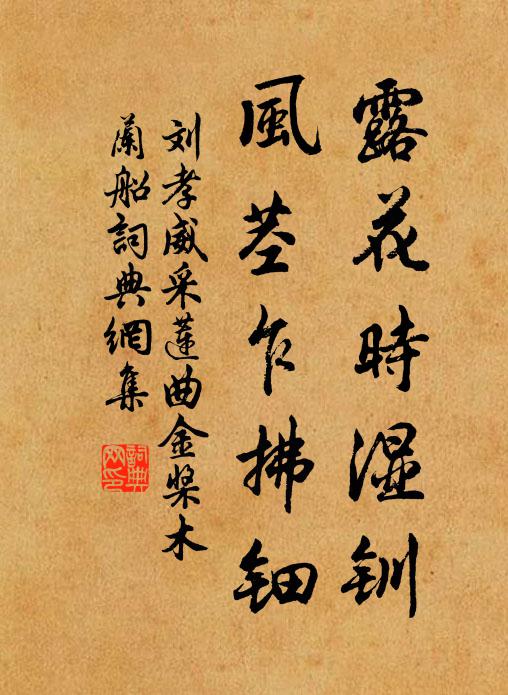 露花時濕釧
風茎乍拂鈿
刘孝威采蓮曲金槳木
蘭船詞典網集
詞典
网印